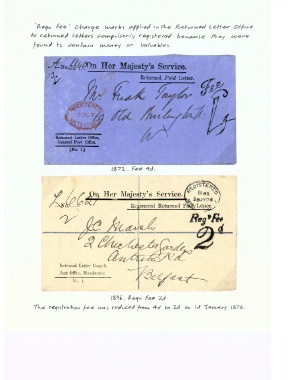 'Reqn Fee' Charge marks applied in the Returned Letter Office
to returned letters compulsorily registered because they were
found to contain money or valuables.
On Her Majesty's Service.
Returned Paid Letter.
Mr. Fredk Taylor
Fee
9 Old Burlington St.
W
REGISTERED
Returned Letter Office,
General Post Office.
[No. 1.]
1872. Fee 4d.
On Her Majesty's Service.
Registered Returned Paid Letter.
REGISTERED
Reg'n Fee
2d
J C Marsh
2 Chichester Gardens
Antrim Rd
Belfast
Returned Letter Branch,
Post Office, Manchester
No. 1.
1896. Regn Fee 2d.
The registration fee was reduced from 4d to 2d on 1st January 1878.